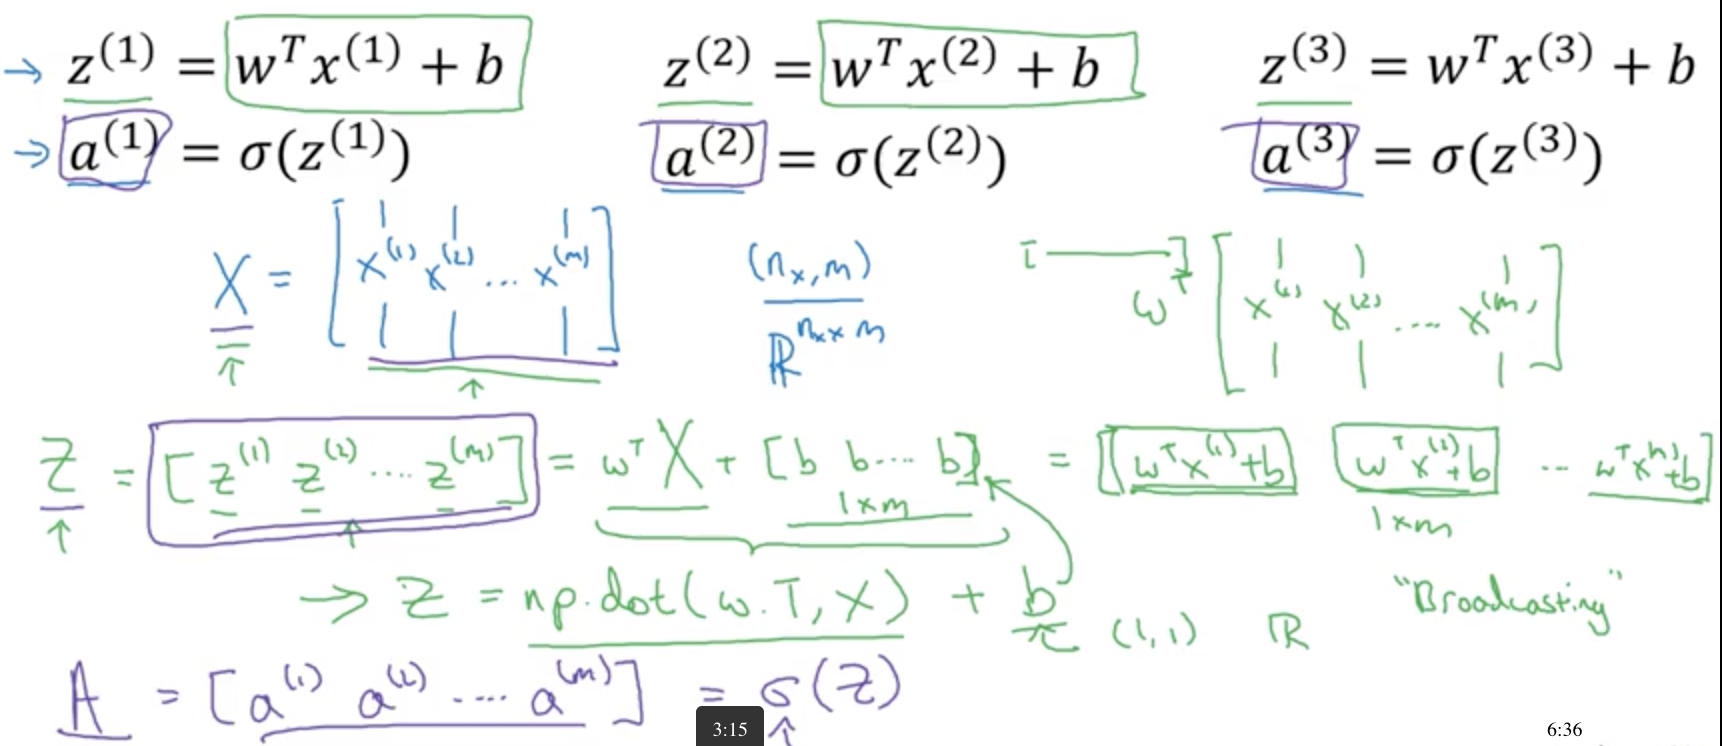 → z^(1) = w^T x^(1) + b    z^(2) = w^T x^(2) + b    z^(3) = w^T x^(3) + b
→ a^(1) = σ(z^(1))    a^(2) = σ(z^(2))    a^(3) = σ(z^(3))
X = [x^(1) x^(2) ... x^(m)]    (n_x, m)    w^T [x^(1) x^(2) .... x^(m)]
ℝ^(n_x × m)
Z = [z^(1) z^(2) .... z^(m)] = w^T X + [b b ... b] = [w^T x^(1) + b    w^T x^(2) + b    ...    w^T x^(m) + b]
1×m    1×m
→ Z = np.dot(w.T, X) + b    (1,1)    ℝ    "Broadcasting"
A = [a^(1) a^(2) .... a^(m)] = σ(Z)
3:15    6:36